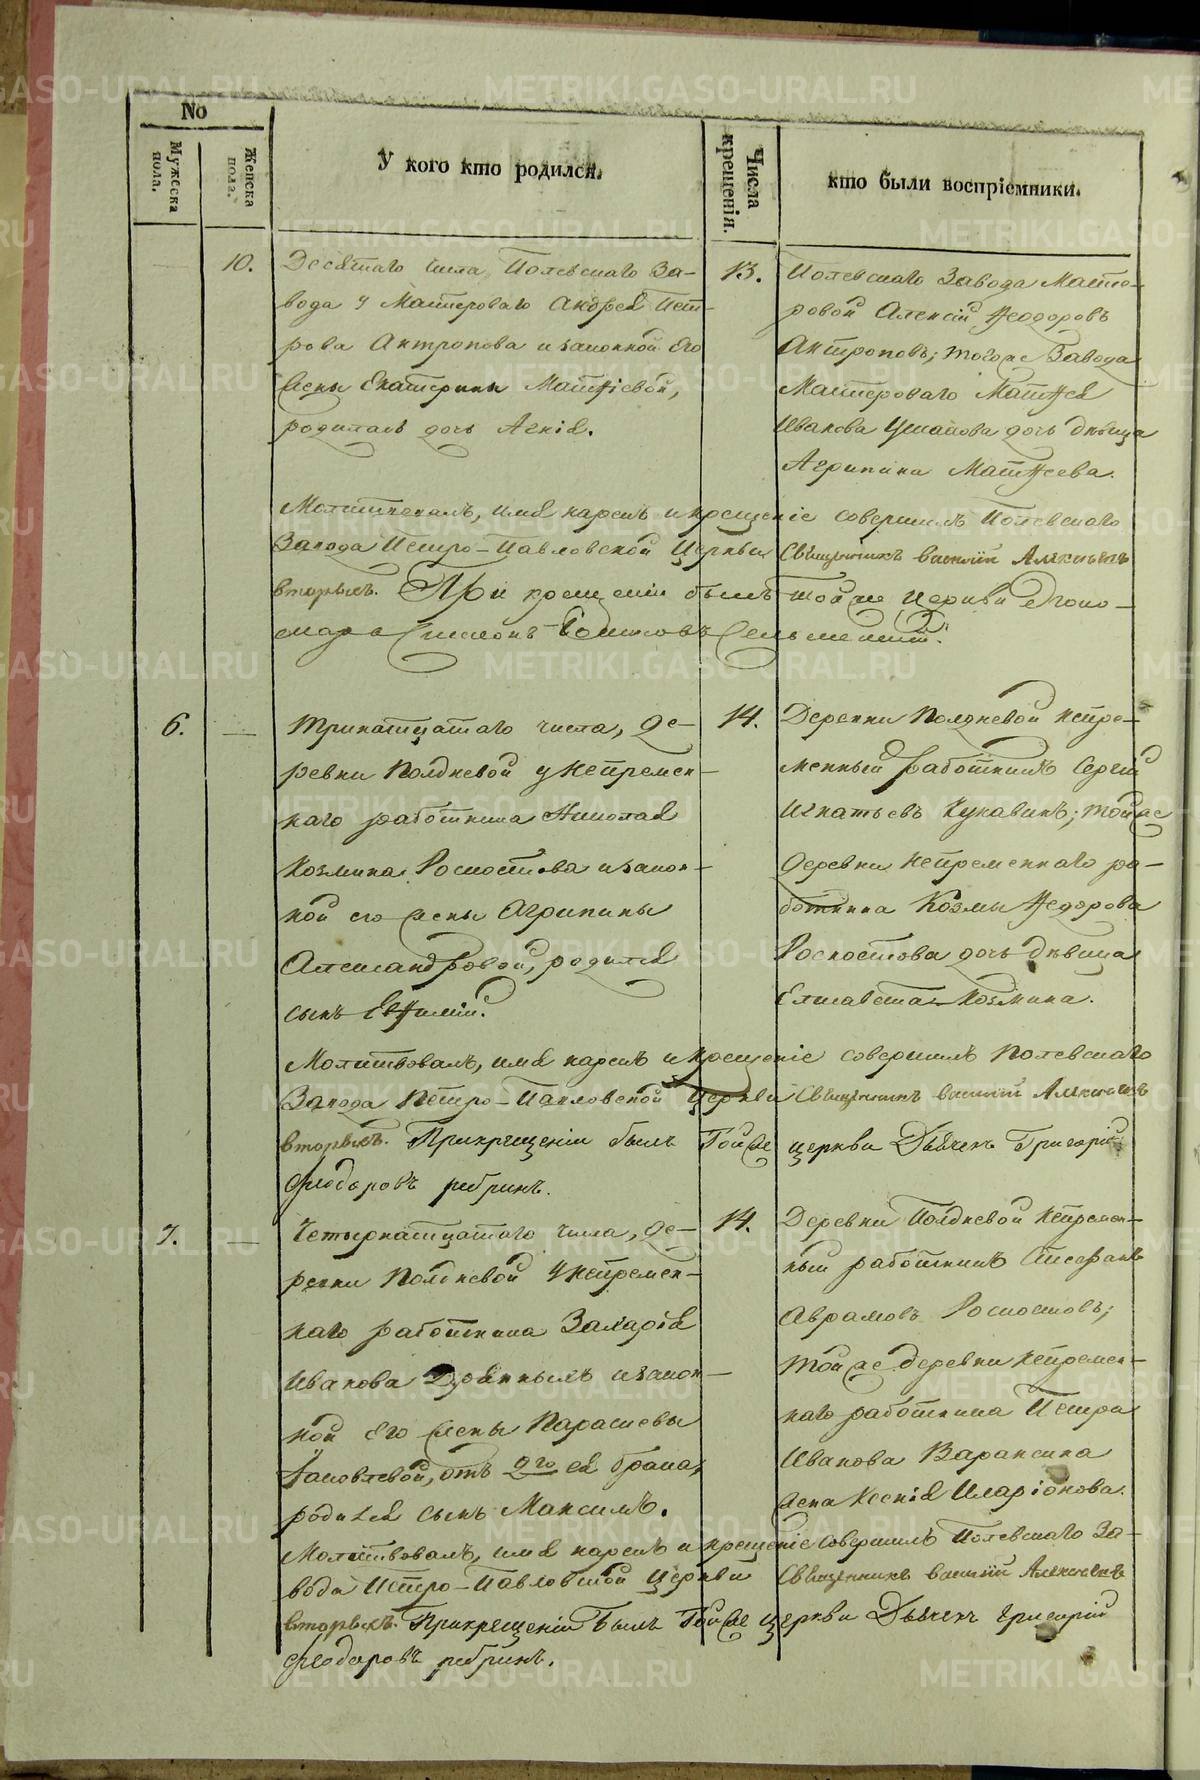 No
Мужеска пола.
Женска пола.
У кого кто родился.
Числа крещенія.
кто были воспріемники.
10.
Десятаго числа, Полевскаго За-
вода у Мастероваго Андрея Пет-
рова Антропова и законной его
жены Екатерины Матѳіевой,
родилась дочь Агнія.
13.
Полевскаго Завода Масте-
ровой Алексій Ѳеодоровъ
Антроповъ; тогоже Завода
Мастероваго Матѳея
Иванова Ушакова дочь дѣвица
Агрипина Матѳеева.
Молитвовалъ, имя нарекъ и крещеніе совершилъ Полевскаго
Завода Петро-Павловской Церкви Священникъ Василій Алексѣевъ
вторыхъ. При крещеніи былъ тойже Церкви
Симеонъ
6.
Тринатцатаго числа, де-
ревни Полдневой у Непремен-
наго работника Николая
Козмина Роскостова и закон-
ной его жены Агрипины
Александровой, родился
сынъ Евѳимій.
14.
Деревни Полдневой Непре-
менный работникъ Сергій
Игнатьевъ Кукавинъ; тойже
деревни Непременнаго ра-
ботника Козмы Ѳедорова
Роскостова дочь дѣвица
Елисавета Козмина.
Молитвовалъ, имя нарекъ и крещеніе совершилъ Полевскаго
Завода Петро-Павловской Церкви Священникъ Василій Алексѣевъ
вторыхъ. При крещеніи былъ Тойже церкви Дьячекъ Григорій
Ѳеодоровъ
7.
Четырнатцатаго числа, де-
ревни Полдневой у Непремен-
наго работника Захарія
Иванова и закон-
ной его жены Парасковьи
Яковлевой, отъ 2го ея брака,
родился сынъ Максимъ.
14.
Деревни Полдневой Непремен-
ный работникъ Стефанъ
Аврамовъ Роскостовъ;
тойже деревни Непремен-
наго работника Петра
Иванова Вараксина
жена Ксенія Иларіонова.
Молитвовалъ, имя нарекъ и крещеніе совершилъ Полевскаго За-
вода Петро-Павловской Церкви Священникъ Василій Алексѣевъ
вторыхъ. При крещеніи былъ Тойже церкви Дьячекъ Григорій
Ѳеодоровъ
METRIKI.GASO-URAL.RU